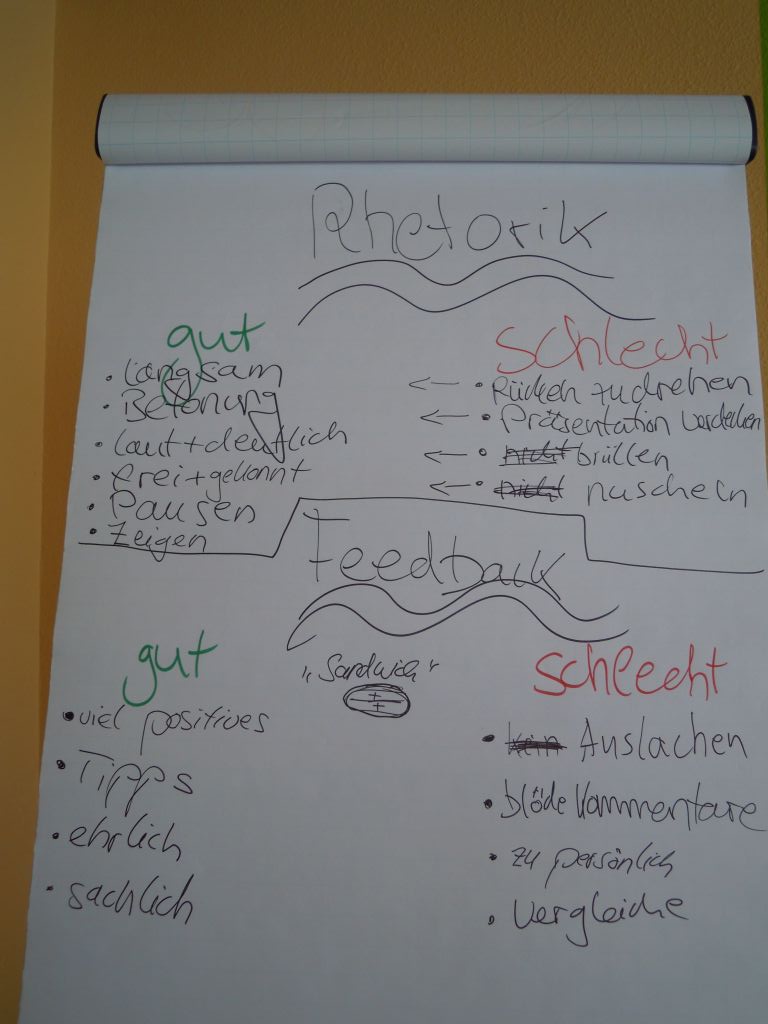 Rhetorik
gut
• langsam
• Betonung
• laut + deutlich
• frei + gekonnt
• Pausen
• Zeigen
schlecht
← • Rücken zudrehen
← • Präsentation verdecken
← • nicht brüllen
← • nicht nuscheln
Feedback
„Sandwich"
gut
• viel positives
• Tipps
• ehrlich
• sachlich
schlecht
• kein Auslachen
• blöde Kommentare
• zu persönlich
• Vergleiche